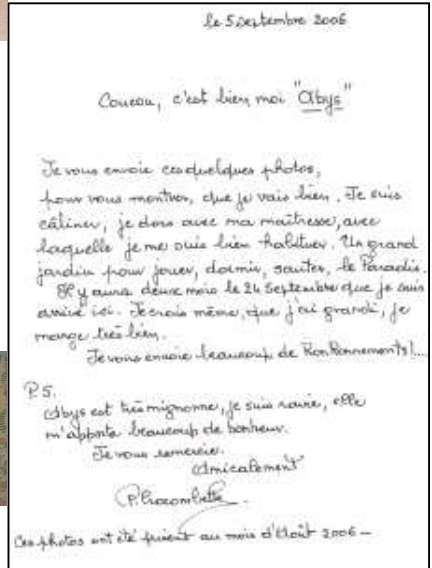 le 5 Septembre 2006
Coucou, c'est bien moi "Abys"
Je vous envoie ces quelques photos,
pour vous montrer, que je vais bien. Je suis
câliner, je dors avec ma maîtresse, avec
laquelle je me suis bien habituer. Un grand
jardin pour jouer, dormir, sauter, le Paradis.
Il y aura deux mois le 24 Septembre que je suis
arrivé ici. Je crois même, que j'ai grandi, je
mange très bien.
Je vous envoie beaucoup de RonRonnements!...
P.S.
Abys est très mignonne, je suis ravie, elle
m'apporte beaucoup de bonheur.
Je vous remercie.
Amicalement
Ces photos ont été prisent au mois d'Août 2006 -